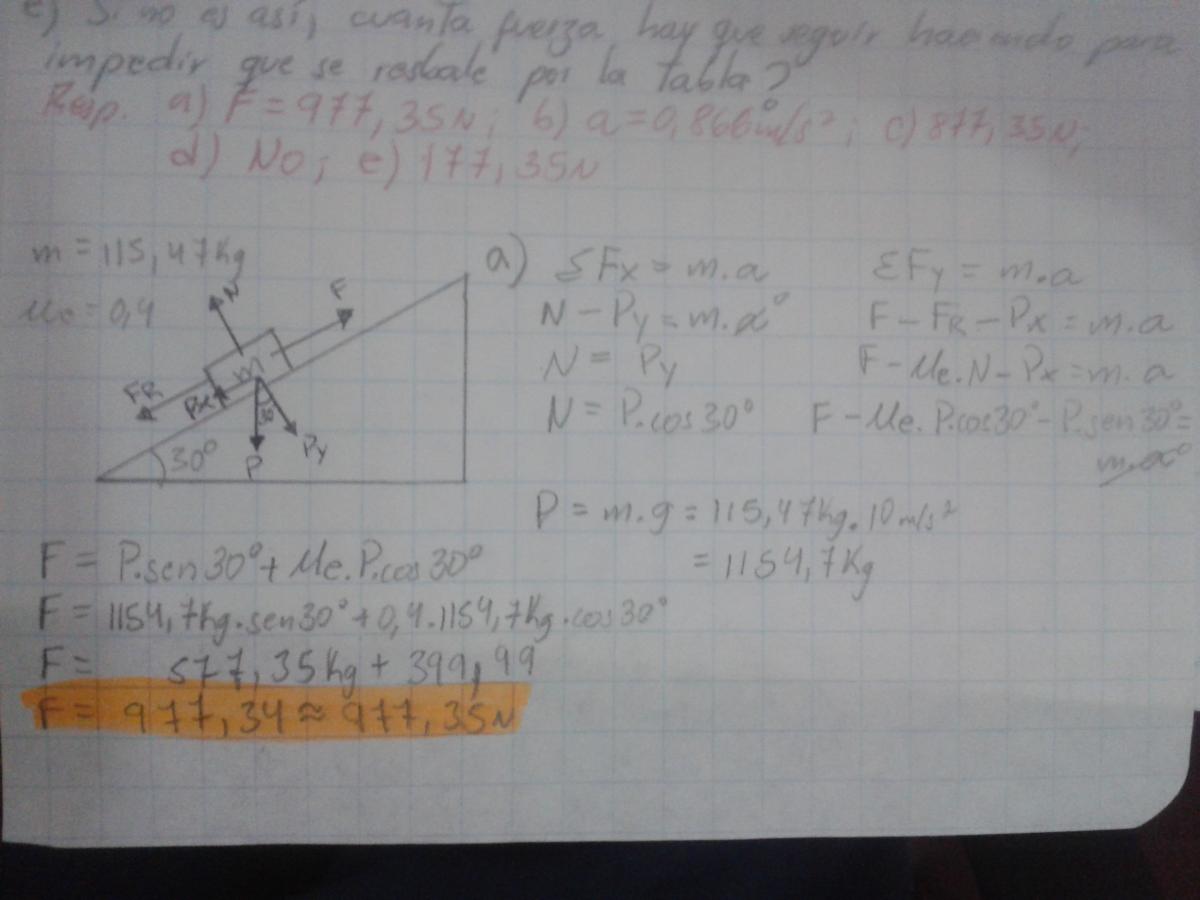 e) Si no es así, cuanta fuerza hay que seguir haciendo para
impedir que se resbale por la tabla?
Resp. a) F = 977,35N; b) a = 0,866m/s²; c) 877,35N;
d) No; e) 177,35N
m = 115,47Kg
Me = 0,4
N
F
m
FR
Px
30°
P
Py
30°
a) ΣFx = m.a
N - Py = m.a°
N = Py
N = P.cos30°
ΣFy = m.a
F - FR - Px = m.a
F - Me.N - Px = m.a
F - Me. P.cos30° - P.sen30° =
m.a°
P = m.g = 115,47Kg.10m/s²
= 1154,7Kg
F = P.sen30° + Me.P.cos30°
F = 1154,7Kg.sen30° + 0,4.1154,7Kg.cos30°
F = 577,35Kg + 399,99
F = 977,34 ≈ 977,35N